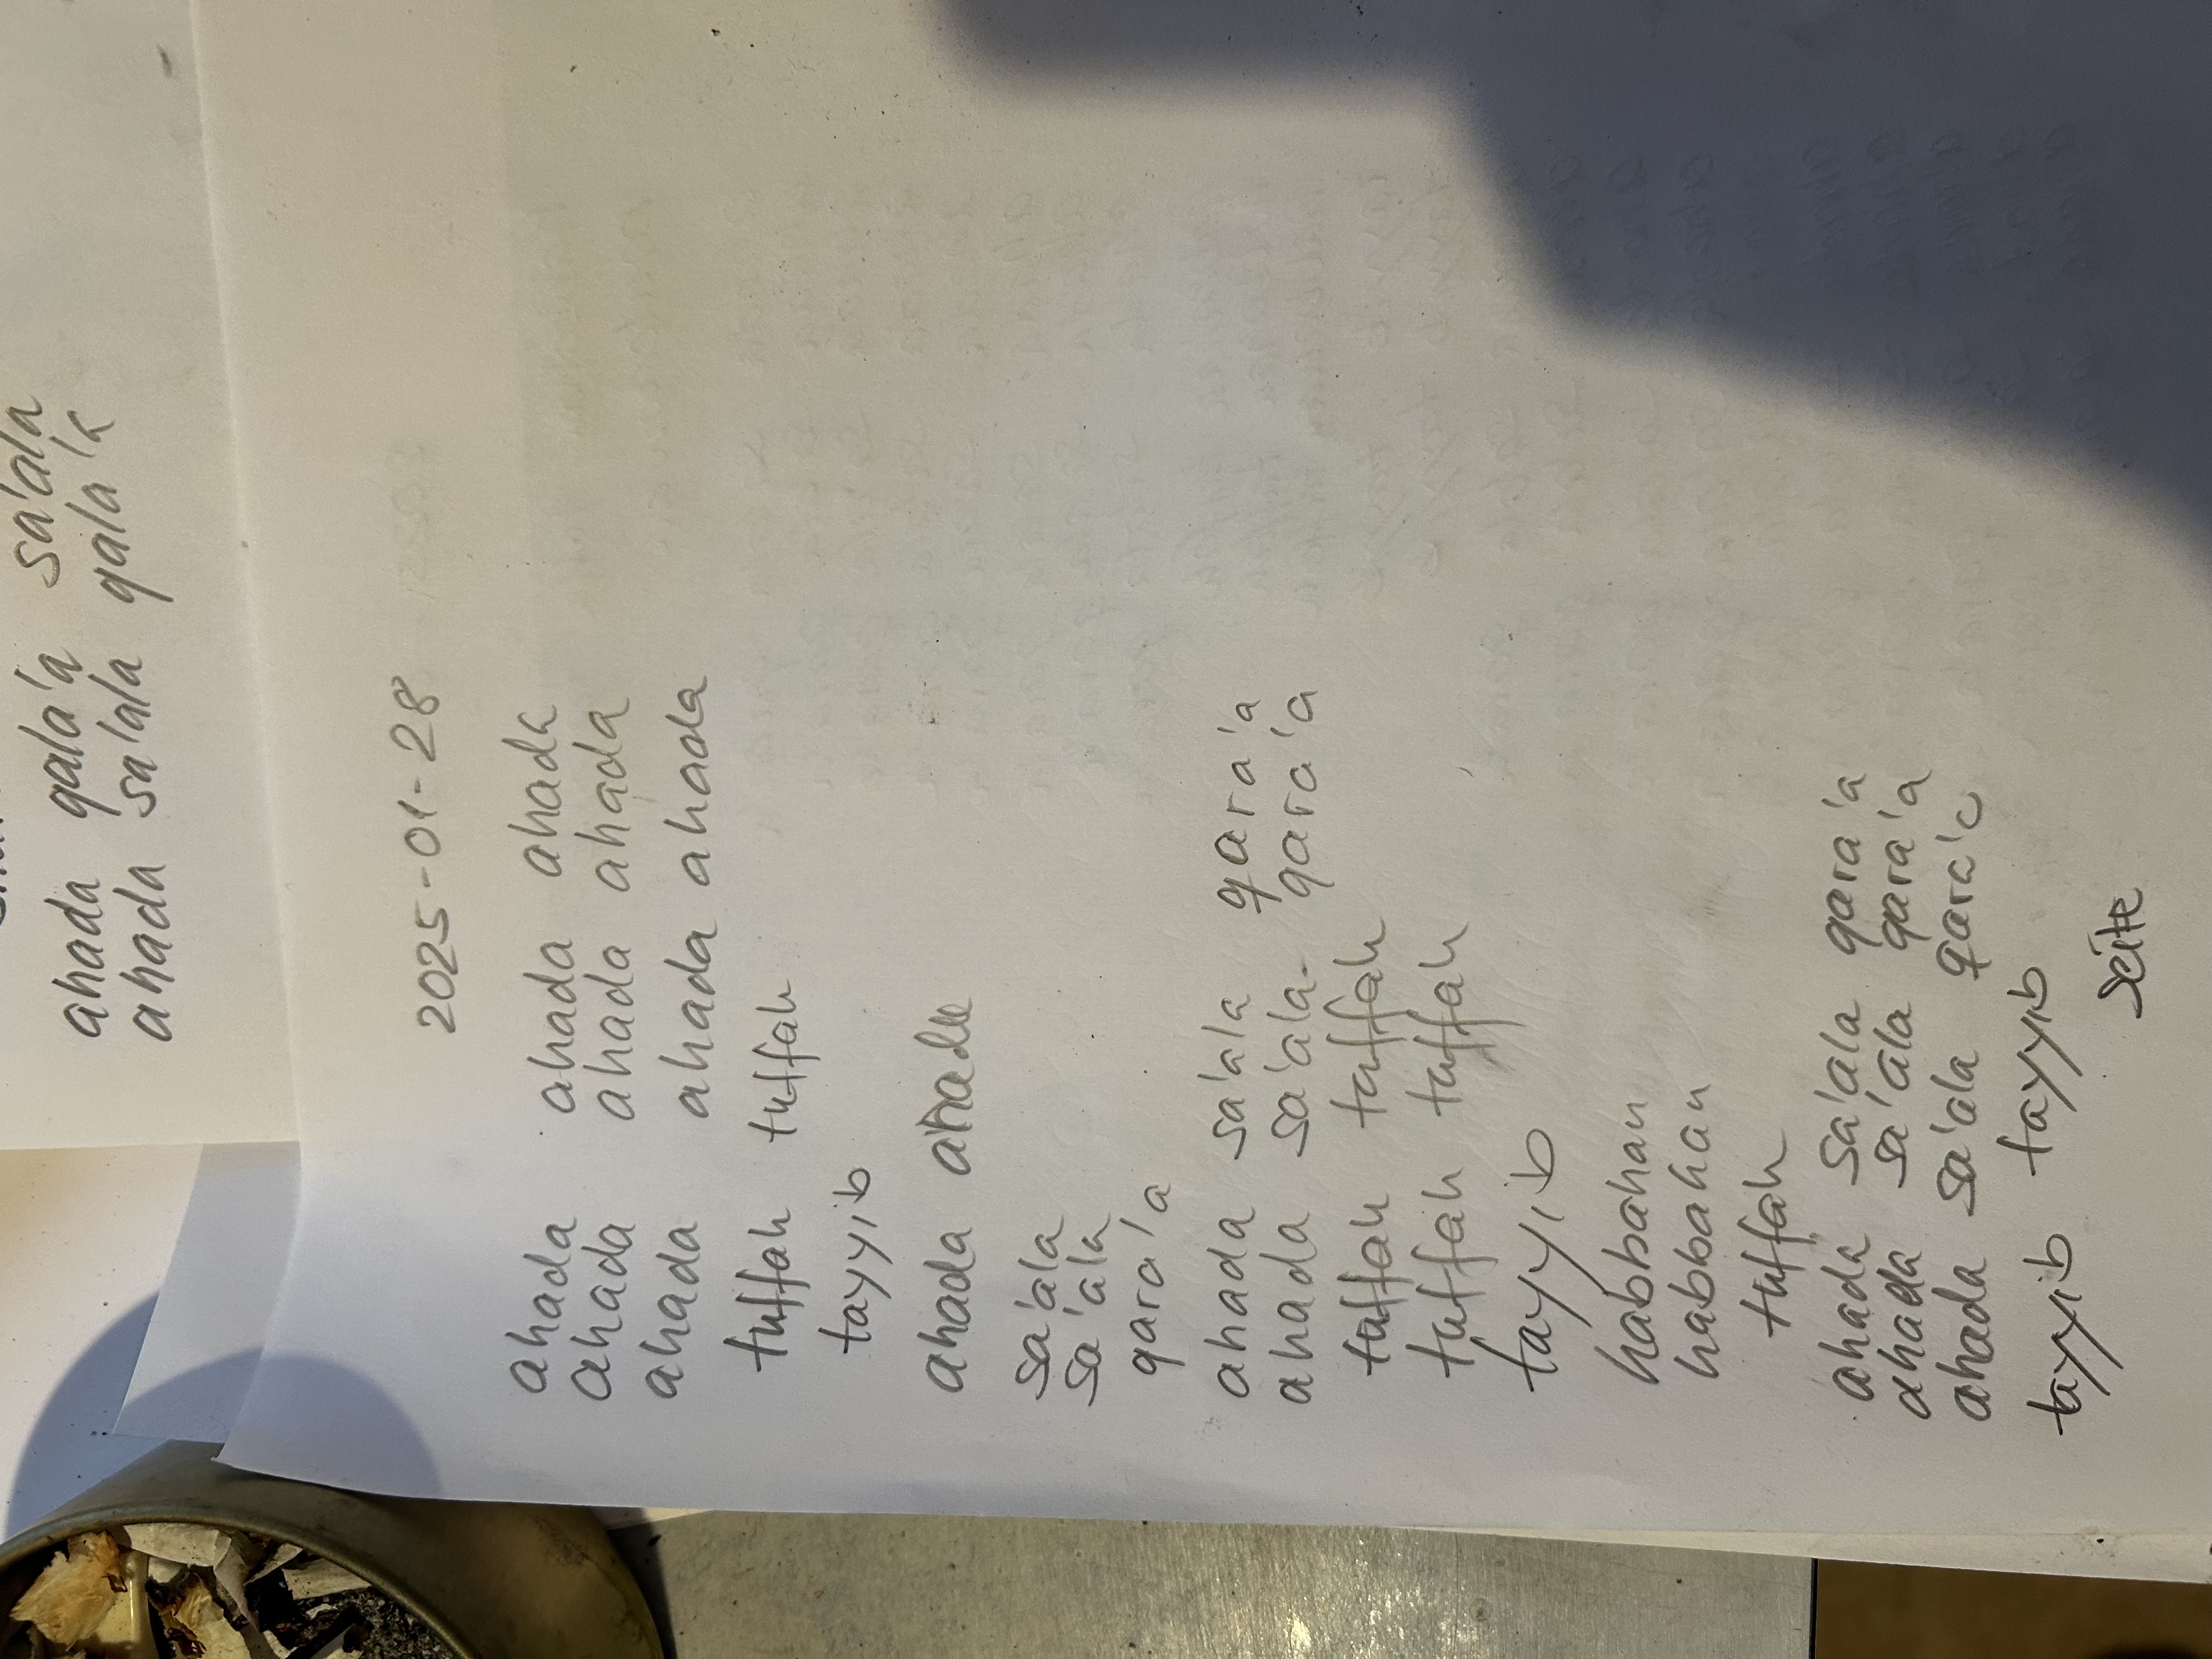 ahada qala'a sa'ala
ahada sa'ala qala'a
2025-01-28
ahada ahada ahada
ahada ahada ahada
ahada ahada ahada
tuffah tuffah
tayyib
ahada ahada
sa'ala
sa'ala
qara'a
ahada sa'ala qara'a
ahada sa'ala qara'a
tuffah tuffah
tuffah tuffah
tayyib
habbahan
habbahan
tuffah
ahada sa'ala qara'a
ahada sa'ala qara'a
ahada sa'ala qara'a
tayyib tayyib
seite